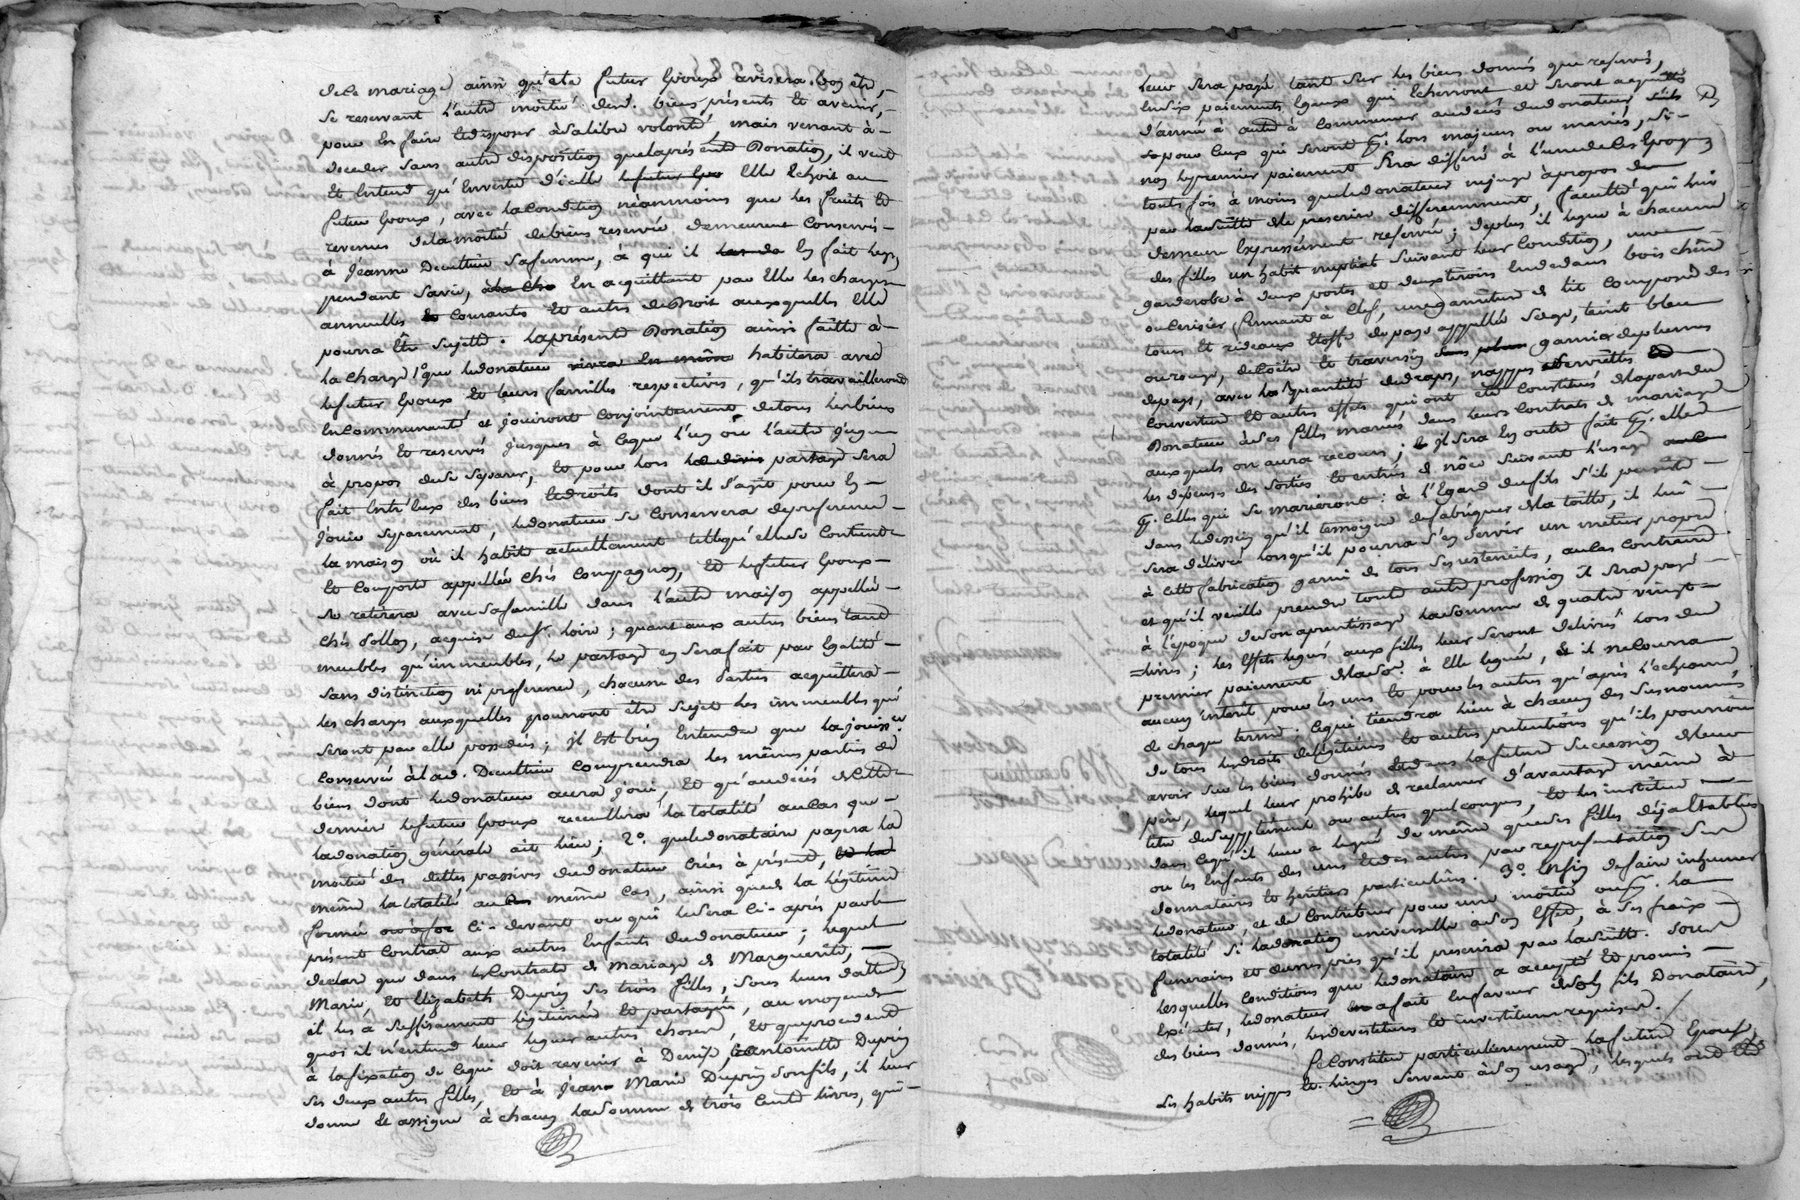 de ce mariage ainsi que le futur Epoux avisera bon être,
se reservant l'autre moitié desd. biens présents et avenir,
pour en faire et disposer à sa libre volonté, mais venant à
deceder sans autre disposition que la présente Donation, il veut
et entend qu'en vertu d'icelle elle Echoit au
futur Epoux, avec la condition néanmoins que les fruits et
revenus de la moitié de biens reservée demeurent conservés
à Jeanne Decultieu sa femme, à qui il en fait legs
pendant sa vie, En acquittant par Elle les charges
annuelles courantes et autres de Droit auxquelles Elle
pourra Etre sujette. la présente Donation ainsi faitte à
la charge 1° que le donateur habitera avec
le futur Epoux et leurs familles respectives, qu'ils travailleront
en communauté et jouiront conjointement de tous les biens
donnés et reservés jusques à ce que l'un ou l'autre juge
à propos de se separer, et pour lors partage sera
fait Entr'eux des biens et droits dont il s'agit pour en
jouir separement, le donateur se conservera de preference
la maison où il habite actuellement telle qu'elle se contient
et comporte appellée chés Compagnon, et le futur Epoux
se retirera avec sa famille dans l'autre maison appellée
chés Dollon, acquise du Sr. loire; quant aux autres biens tant
meubles qu'immeubles, le partage en sera fait par Egalité
sans distinction ni preference, chacune des Parties acquittera
les charges auxquelles pourront être sujet les immeubles qui
seront par elle possedés; il Est bien Entendu que la jouisse.
conservée à lad. Decultieu comprendra les mêmes parties de
biens dont le donateur aura joui, et qu'au décès de cette
derniere le futur Epoux receuillera la totalité au cas que
la donation générale ait lieu; 2°. que le donataire payera la
moitié des dettes passives du donateur créés à présent,
même la totalité au même cas, ainsi que la légitime
formée ci-devant ou qui le sera ci-après par le
présent contrat aux autres Enfants du donateur; lequel
declare que dans les Contrats de mariage de Marguerite,
Marie, et Elizabeth Dupin ses trois filles, sous leurs dattes
il les a suffisament légitimé et partagés, au moyen de
quoi il n'entend leur leguer autres choses, et que procedant
à la fixation de ce qui doit revenir à Denise, et antoinette Dupin
ses deux autres filles, et à Jean Marie Dupin son fils, il leur
donne et assigne à chacun la somme de trois cents livres, qui
leur sera payé tant sur les biens donnés que reservés,
En six paiements Egaux qui Echerront et seront acquittés
d'année à autre à commencer au décès du donateur
pour ceux qui seront pr. lors majeurs ou mariés, si
non le premier paiement sera differé à l'une de ces Epoques
toute fois à moins que le donateur ne juge à propos de
par la suitte de le prescrire differemment, faculté qui lui
demeure Expressément reservée; deplus il legue à chacune
des filles un habit nuptial suivant leur condition, une
garderobe à deux portes et deux tiroirs en dedans bois chêne
ou cerisier fermant à clef, une garniture de lit composée des
tours et rideaux Etoffe de pays appellée Serge, teint bleu
ou rouge, de coëtre et traversin garnis de plumes
de pays, avec la quantité de draps, nappes serviettes
couverture et autres effets qui ont été constitués de la part du
Donateur à ses filles mariées dans leurs contrats de mariage
auxquels on aura recours; il sera En outre fait pr. elles
les depenses des sorties et entrées de nôce suivant l'usage
pr. celles qui se marieront: à l'Egard du fils s'il persiste
dans le dessein qu'il temoigne de fabriquer de la toille, il lui
sera delivré lorsqu'il pourra s'en servir un métier propre
à cette fabrication garni de tous ses ustensils, au cas contraire
et qu'il veuille prendre toute autre profession il sera payé
à l'époque de son aprentissage la somme de quatre vingt
livres; les Effets legués aux filles leur seront delivrés lors du
premier paiement de la So. à Elle leguée, et il ne courra
aucun interêt pour les uns et pour les autres qu'après l'echeance
de chaque terme. Ce qui tiendra lieu à chacun des susnommés
de tous les droits de légitime et autres pretentions qu'ils pourroient
avoir sur les biens donnés et dans la future succession de leur
pere, lequel leur prohibe de reclamer d'avantage même à
titre de supplement ou autres quelconques, et les institue
dans ce qu'il leur a legué de même que ses filles déja Etablies
ou les Enfants des uns et des autres par representation ses
donnataires et heritiers particuliers. 3°. Enfin de faire inhumer
le donateur, et de contribuer pour une moitié ou pr. la
totalité si la donation universelle a son Effet, à ses fraix
funeraires et œuvres pies qu'il prescrira par la suitte. Sous
lesquelles conditions que le donataire a accepté et promis
Executer, le donateur a fait en faveur de son fils Donataire,
des biens donnés, les devestitures et investitures requises.
Se Constitue particulierement la future Epouse,
les habits nippes et linges servant à son usage, lesquels ont été